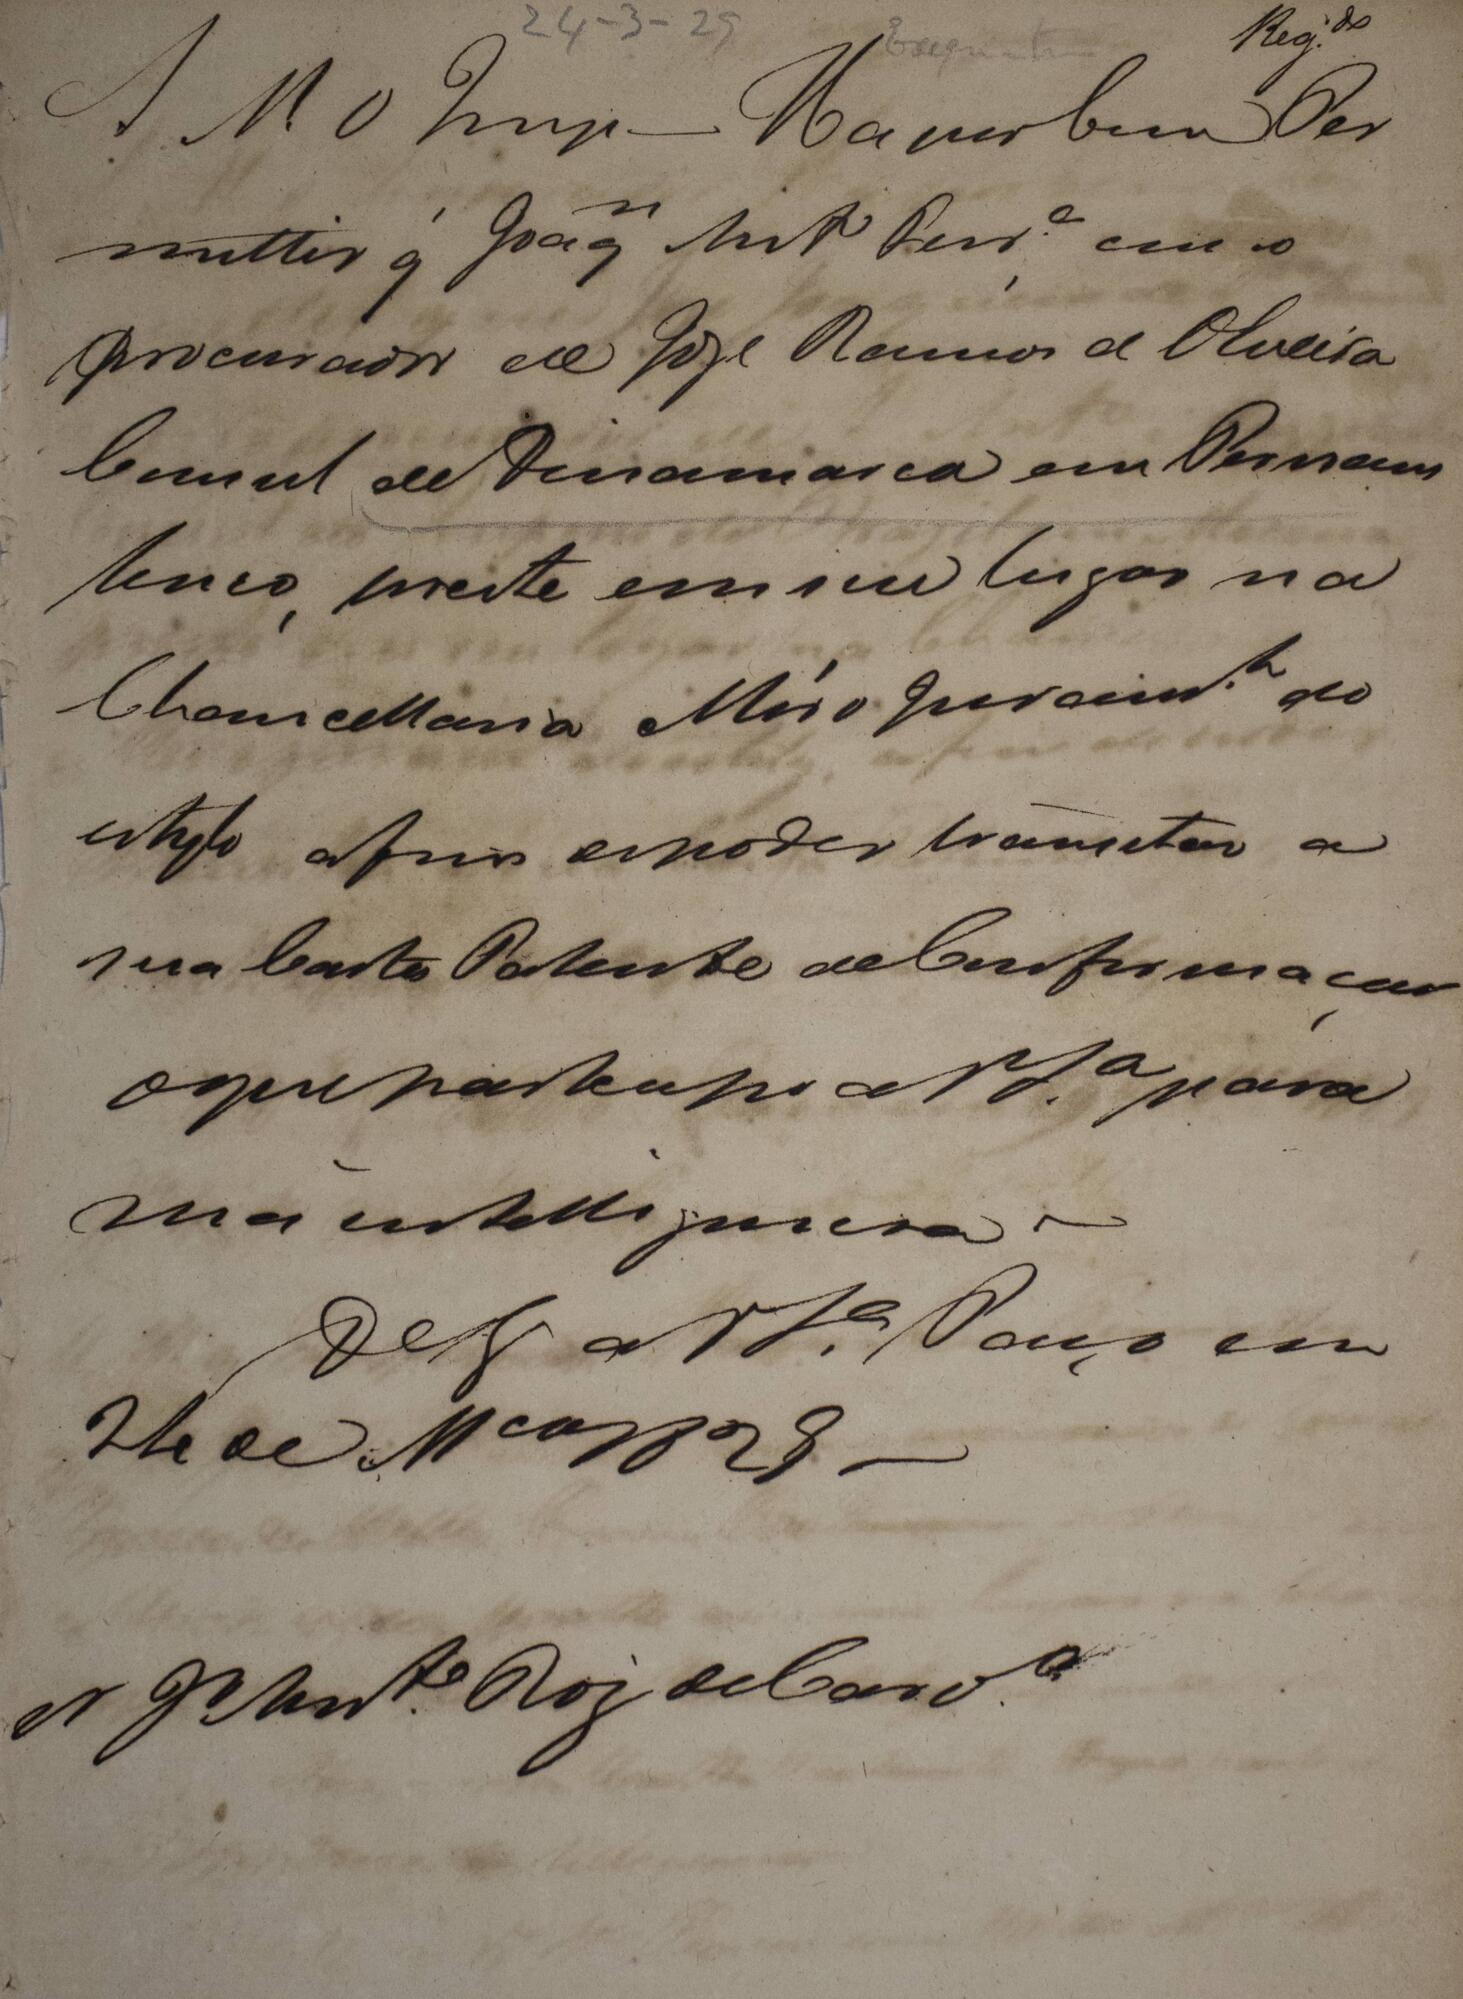 24-3-29
Exequatur
Reg.do
S M O Imp. Ha por bem Per
mittir q̃ Joaqm Anto Ferra como
procurador de Joze Ramos de Olveira
Consul de Dinamarca em Pernam
buco, preste em seu lugar na
Chancellaria Mór o Juramto do
estylo a fim de poder transitar a
sua Carta Patente de Confirmaçaõ
o que participo a V Sa para
sua intelligencia —
De G a V Sa Paço em
24 de Mço 829 —
Je Anto Roiz de Carvo